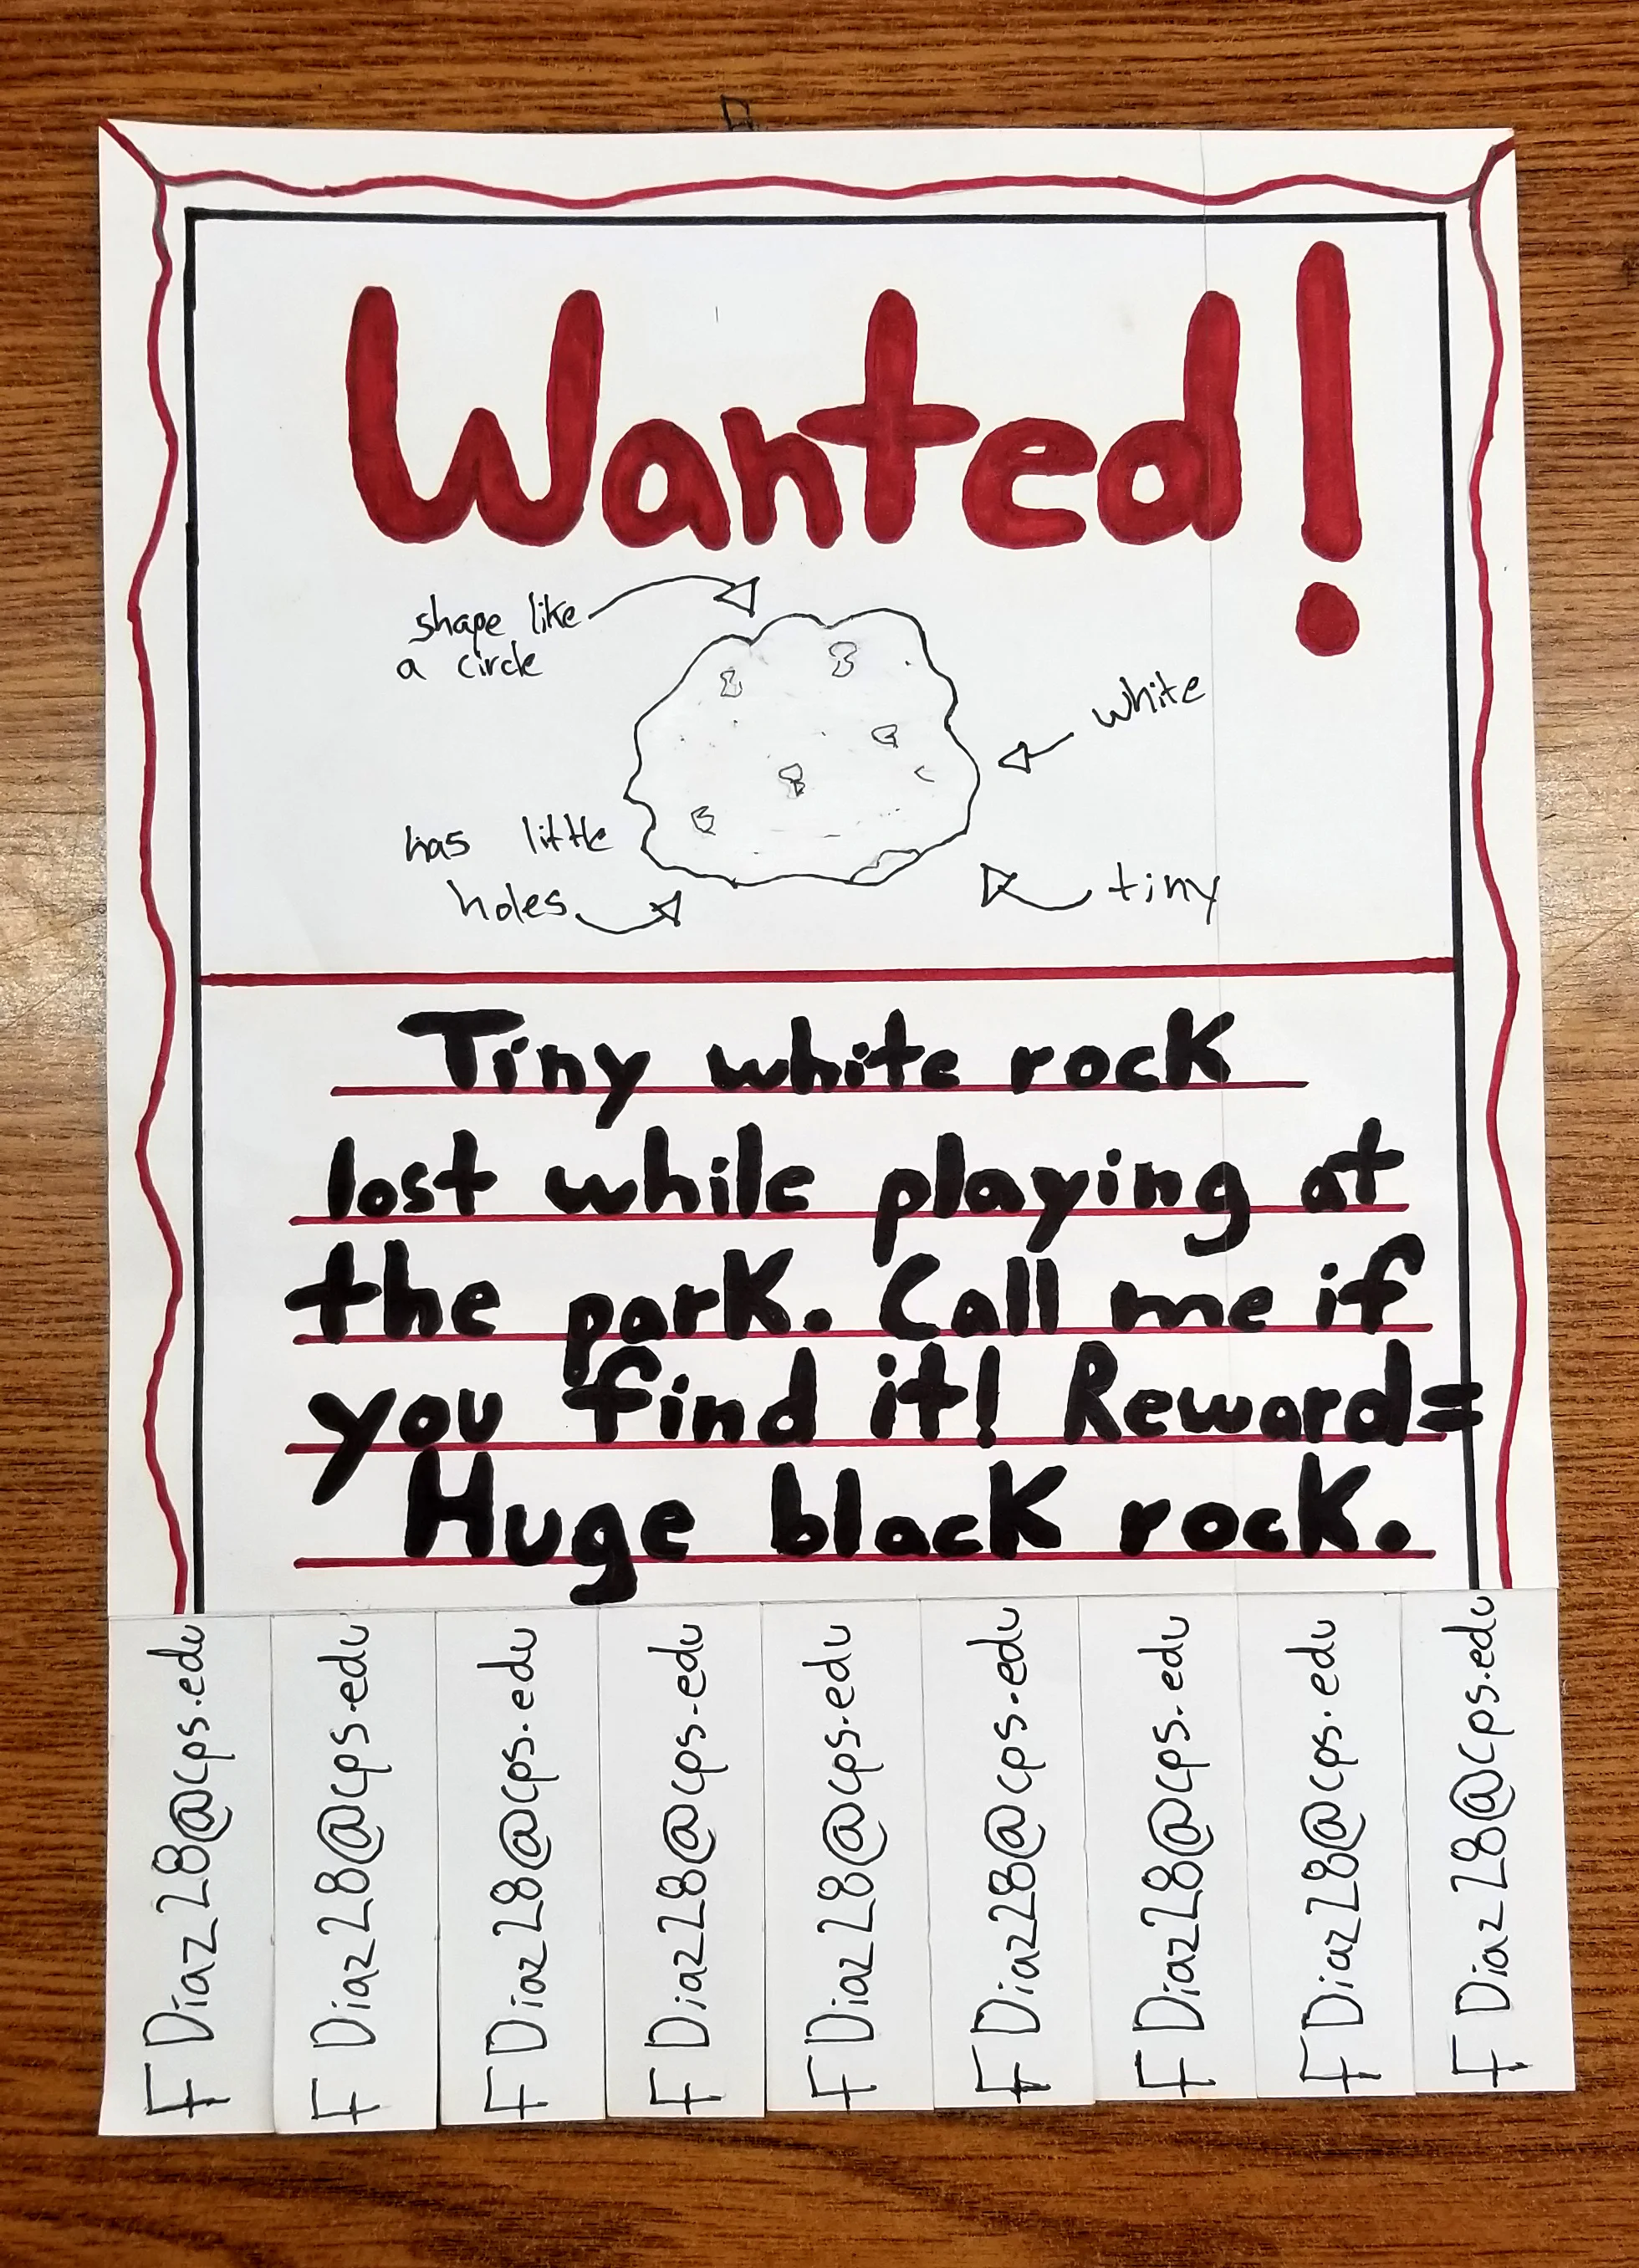 Wanted!
shape like
a circle
white
has little
holes
tiny
Tiny white rock
lost while playing at
the park. Call me if
you find it! Reward=
Huge black rock.
FDiaz28@cps.edu
FDiaz28@cps.edu
FDiaz28@cps.edu
FDiaz28@cps.edu
FDiaz28@cps.edu
FDiaz28@cps.edu
FDiaz28@cps.edu
FDiaz28@cps.edu
FDiaz28@cps.edu